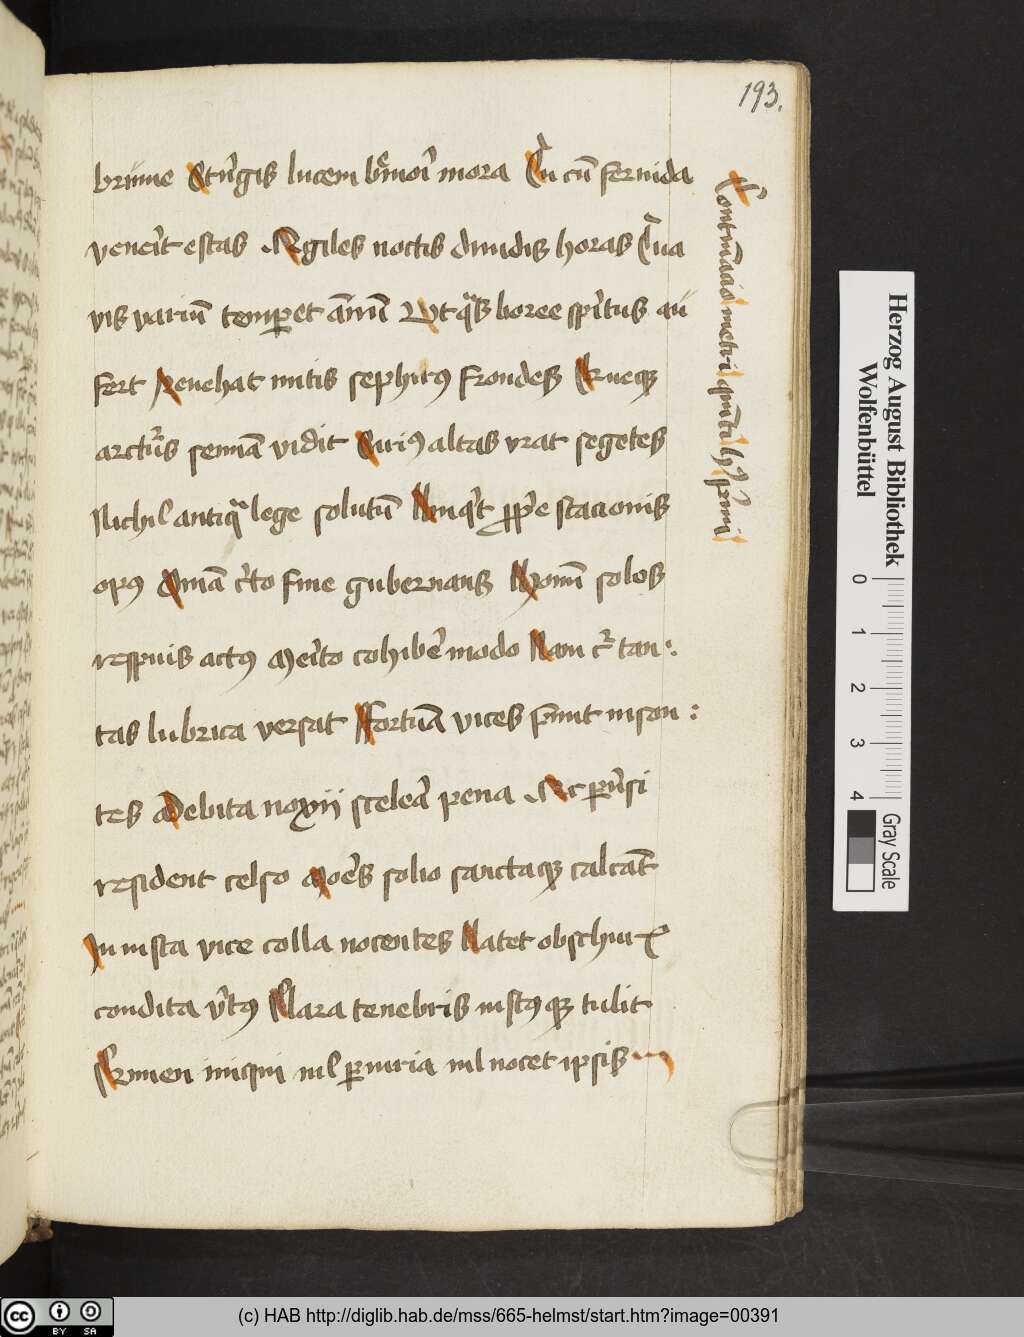 193.
brume Stringis lucem breuiori mora Tu cum feruida
venerit estas Agiles noctis diuidis horas Tua
vis varium temperet annum Vt quas boree spiritus au
fert Reuehat mitis sephirus frondes Queque
arcturus semina vidit Sirius altas vrat segetes
Nichil antiqua lege solutum Linquit proprie stacionis
opus Omnia certo fine gubernans Hominum solos
respuis actus Merito cohibere modo Nam cur tan
tas lubrica versat Fortuna vices premit inson
tes Debita noxii sceleris pena At peruersi
resident celso Mores solio sanctaque calcant
Iniusta vice colla nocentes Latet obschuris
condita virtus Clara tenebris iustusque tulit
Crimen iniqui nil periuria nil nocet ipsis
Continuacio metri quinti libri primi
Herzog August Bibliothek
Wolfenbüttel
0 1 2 3 4
Gray Scale
cc BY SA
(c) HAB http://diglib.hab.de/mss/665-helmst/start.htm?image=00391